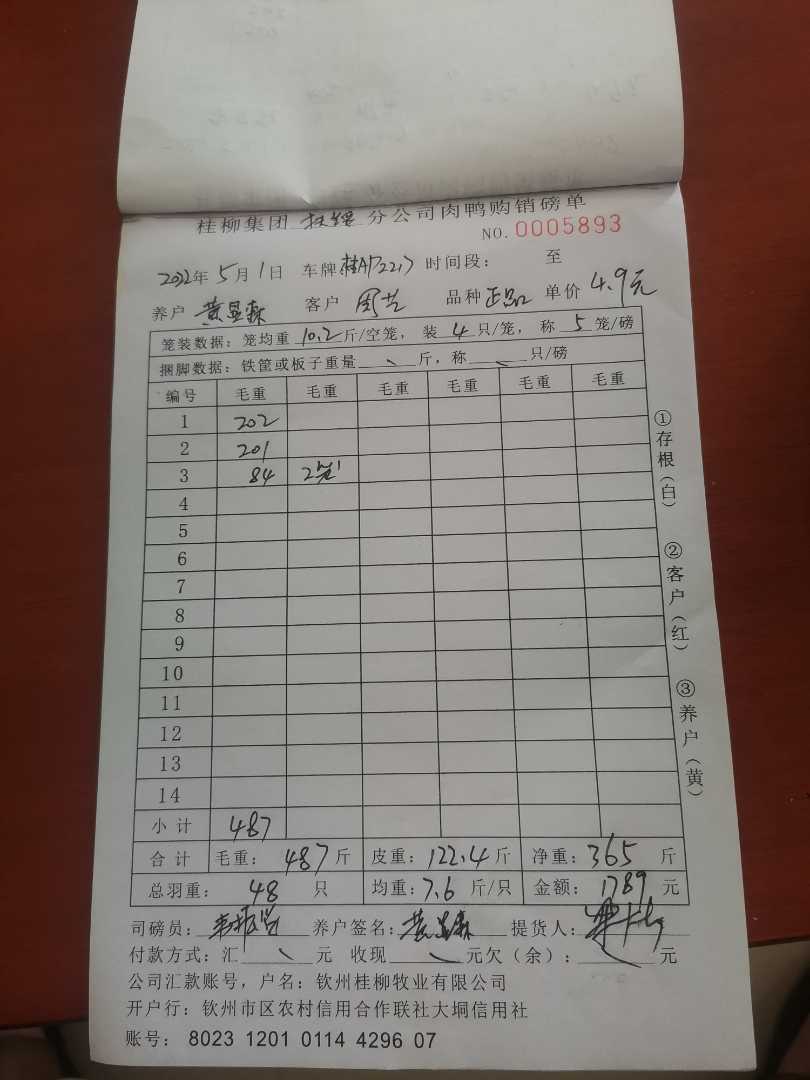 桂柳集团 扶绥 分公司肉鸭购销磅单
NO. 0005893
2022年 5月 1日 车牌 时间段： 至
养户 黄显森 客户 周艺 品种 正品 单价 4.9元
笼装数据：笼均重 10.2 斤/空笼， 装 4 只/笼， 称 5 笼/磅
捆脚数据：铁筐或板子重量 、 斤，称 、 只/磅
编号 毛重 毛重 毛重 毛重 毛重 毛重
1 202
2 201
3 84 2笼
4
5
6
7
8
9
10
11
12
13
14
小计 487
合计 毛重： 487斤 皮重：122.4斤 净重：365 斤
总羽重： 48 只 均重：7.6 斤/只 金额： 1789 元
司磅员： 养户签名：黄显森 提货人：
付款方式：汇 、 元 收现 、 元欠（余）： 、 元
公司汇款账号，户名：钦州桂柳牧业有限公司
开户行：钦州市区农村信用合作联社大垌信用社
账号： 8023 1201 0114 4296 07
①存根（白）
②客户（红）
③养户（黄）